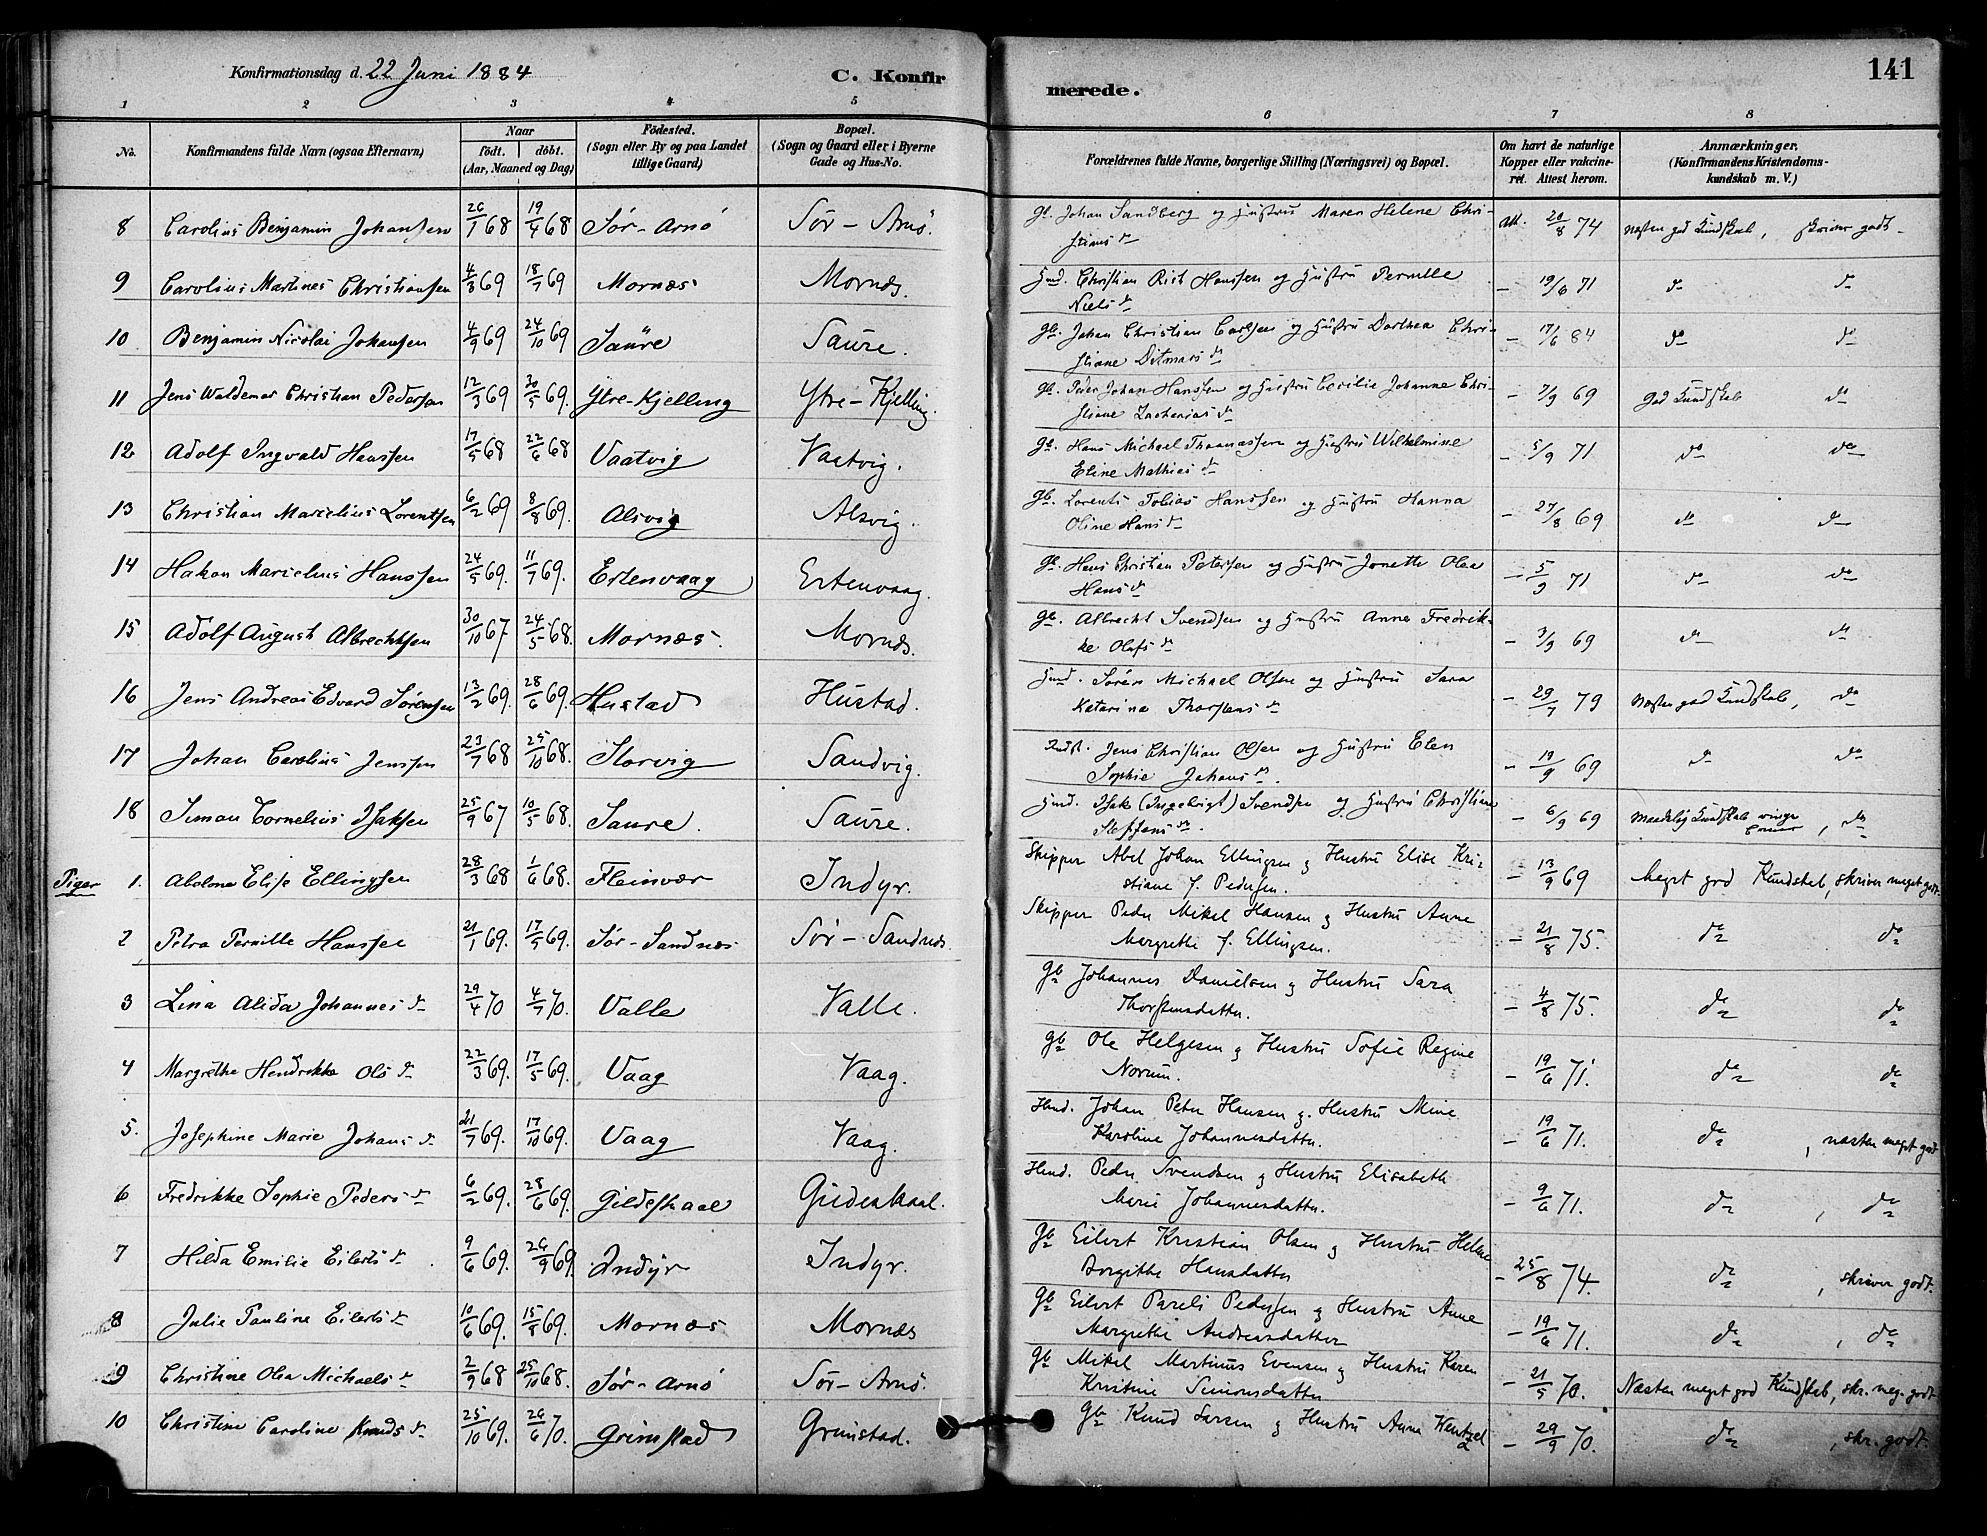 Konfirmationsdag d. 22 Juni 1884
C. Konfir
merede.
141
1 2 3 4 5 6 7 8
No. Konfirmandens fulde Navn (ogsaa Efternavn) Naar födt. döbt. (Aar, Maaned og Dag) Födested. (Sogn eller By og paa Landet tillige Gaard) Bopæl. (Sogn og Gaard eller i Byerne Gade og Hus-No. Forældrenes fulde Navne, borgerlige Stilling (Næringsvei) og Bopæl. Om havt de naturlige Kopper eller vakcineret. Attest herom. Anmærkninger, (Konfirmandens Kristendomskundskab m. V.)
8 Carolius Benjamin Johansen 26/1 68 19/4 68 Sör-Arnö Sör-Arnö. Gb. Johan Sandberg og Hustru Maren Helene Chri-
stians dr Att. 20/8 74 Næsten god Kundskab, skriver godt
9 Carolius Martines Christiansen 4/3 69 18/7 69 Mornæs Mornæs. Hmd. Christian Rist Hanssen og Hustru Pernille
Niels dr – 19/6 71 do do
10 Benjamin Nicolai Johansen 4/9 69 24/10 69 Saure Saure. Gb. Johan Christian Carlsen og Hustru Dorthea Chri-
stiane Ditmars dr – 17/6 84 do do
11 Jens Waldemar Christian Pedersen 12/3 69 30/5 69. Ytre-Kjelling Ytre-Kjelling. Gb. Peder Johan Hanssen og Hustru Cecilie Johanne Chri-
stiane Zacharias dr – 7/9 69 God Kundskab do
12 Adolf Ingvald Hanssen 17/5 68 22/6 68 Vaatvig Vaatvig. Gb. Hans Michael Thomassen og Hustru Wilhelmine
Eline Mathias dr – 5/9 71 do do
13 Christian Marcelius Lorentsen 6/2 69 8/8 69. Alsvig Alsvig. Gb. Lorents Tobias Hanssen og Hustru Hanna
Oline Hans dr – 27/8 69 do do
14 Hakon Marcelius Hanssen 24/5 69. 11/7 69. Ertenvaag Ertenvaag. Gb. Hans Christian Petersen og Hustru Jonette Olea
Hans dr – 5/9 71 do do
15 Adolf August Albrechtsen 30/10 67 24/5 68. Mornæs. Mornæs. Gb. Albrecht Svendsen og Hustru Anne Fredrik-
ke Olafs dr – 3/9 69 do do
16 Jens Andreas Edvard Sörensen 13/2 69. 28/6 69. Hustad Hustad. Hmd. Sören Michael Olsen og Hustru Sara
Katarina Thorstens dr – 29/7 79 Næsten god Kundskab, do
17 Johan Carolius Jenssen 23/7 68 25/10 68. Storvig Sandvig. Indst. Jens Christian Olsen og Hustru Elen
Sophie Johans dr. – 19/9 69 do do
18 Simon Cornelius Isaksen 25/9 67 10/5 68. Saure. Saure. Hmd. Isak (Ingebrigt) Svendsen og Hustru Christiane
Steffens dr. – 6/9 69 Maadelig Kundskab, do
Piger 1. Abelone Elise Ellingsen 28/3 68 1/6 68. Fleinvær Indyr. Skipper Abel Johan Ellingsen og Hustru Elise Kri-
stiane f. Pedersen. – 13/9 69 Meget god Kundskab, skriver meget godt.
2 Petra Pernille Hanssen 21/1 69. 17/5 69. Sör-Sandnæs Sör-Sandnæs. Skipper Peder Mikal Hansen og Hustru Anne
Margrethe f. Ellingsen. – 21/8 75. do do
3 Lina Alida Johannes dr 29/4 70 4/7 70. Valle Valle. Gb Johannes Danielsen og Hustru Sara
Thorstensdatter. – 4/8 75. do do
4 Margrethe Hendrikke Ols dr 22/3 69. 17/5 69. Vaag Vaag. Gb Ole Helgesen og Hustru Sofie Regine
Norum. – 19/6 71. do do
5. Josephine Marie Johans dr 21/7 69. 17/10 69. Vaag Vaag. Hmd. Johan Peter Hansen og Hustru Mine
Karoline Johannesdatter. – 19/6 71. do, næsten meget godt
6 Fredrikke Sophie Peders dr 6/2 69. 28/6 69. Gildeskaal Gildeskaal. Hmd. Peder Svendsen og Hustru Elisabeth
Marie Johannesdatter. – 9/6 71. do, do
7 Hilda Emilie Eilerts dr. 9/6 69. 26/9 69. Indyr Indyr. Gb Eilert Kristian Olsen og Hustru Helene
Borgitte Hansdatter – 25/8 74. do, skriver godt.
8 Julie Pauline Eilerts dr 10/6 69. 15/8 69. Mornæs Mornæs Gb Eilert Pareli Pedersen og Hustru Anne
Margrethe Andreasdatter – 19/6 71. do, do
9 Christine Olea Michaels dr 2/9 68 25/10 68. Sör-Arnö Sör-Arnö. Gb Mikal Martinus Evensen og Hustru Karen
Kristine Simonsdatter – 21/5 70. Næsten meget god Kundskab, skr. meg. godt.
10 Christine Caroline Knuds dr 25/10 69. 26/6 70. Grimstad Grimstad. Gb Knud Larsen og Hustru Anna Wentzel – 29/9 70. do, skr. godt.